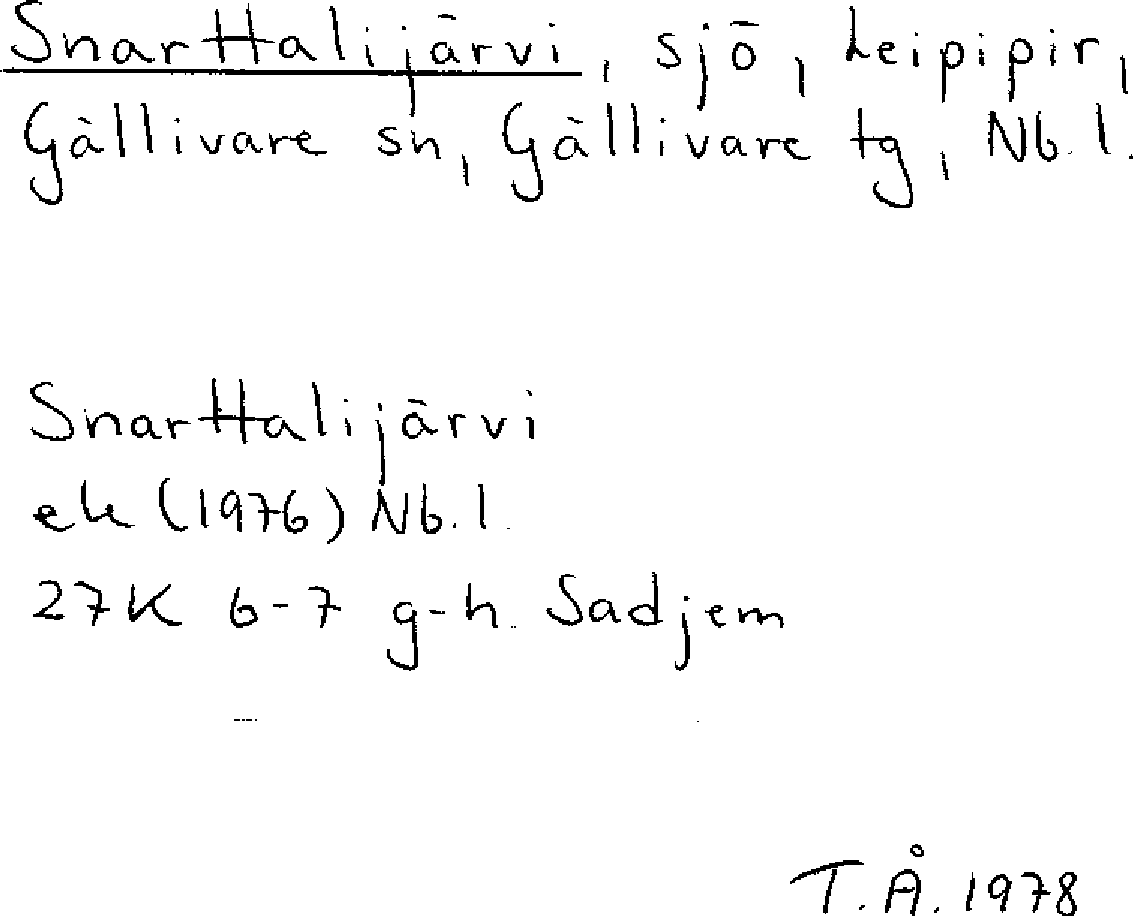 Snarttalijärvi, sjö, Leipipir,
Gällivare sn, Gällivare tg, Nb. l.
Snarttalijärvi
ek (1976) Nb. l.
27K 6-7 g-h. Sadjem
T. Å. 1978